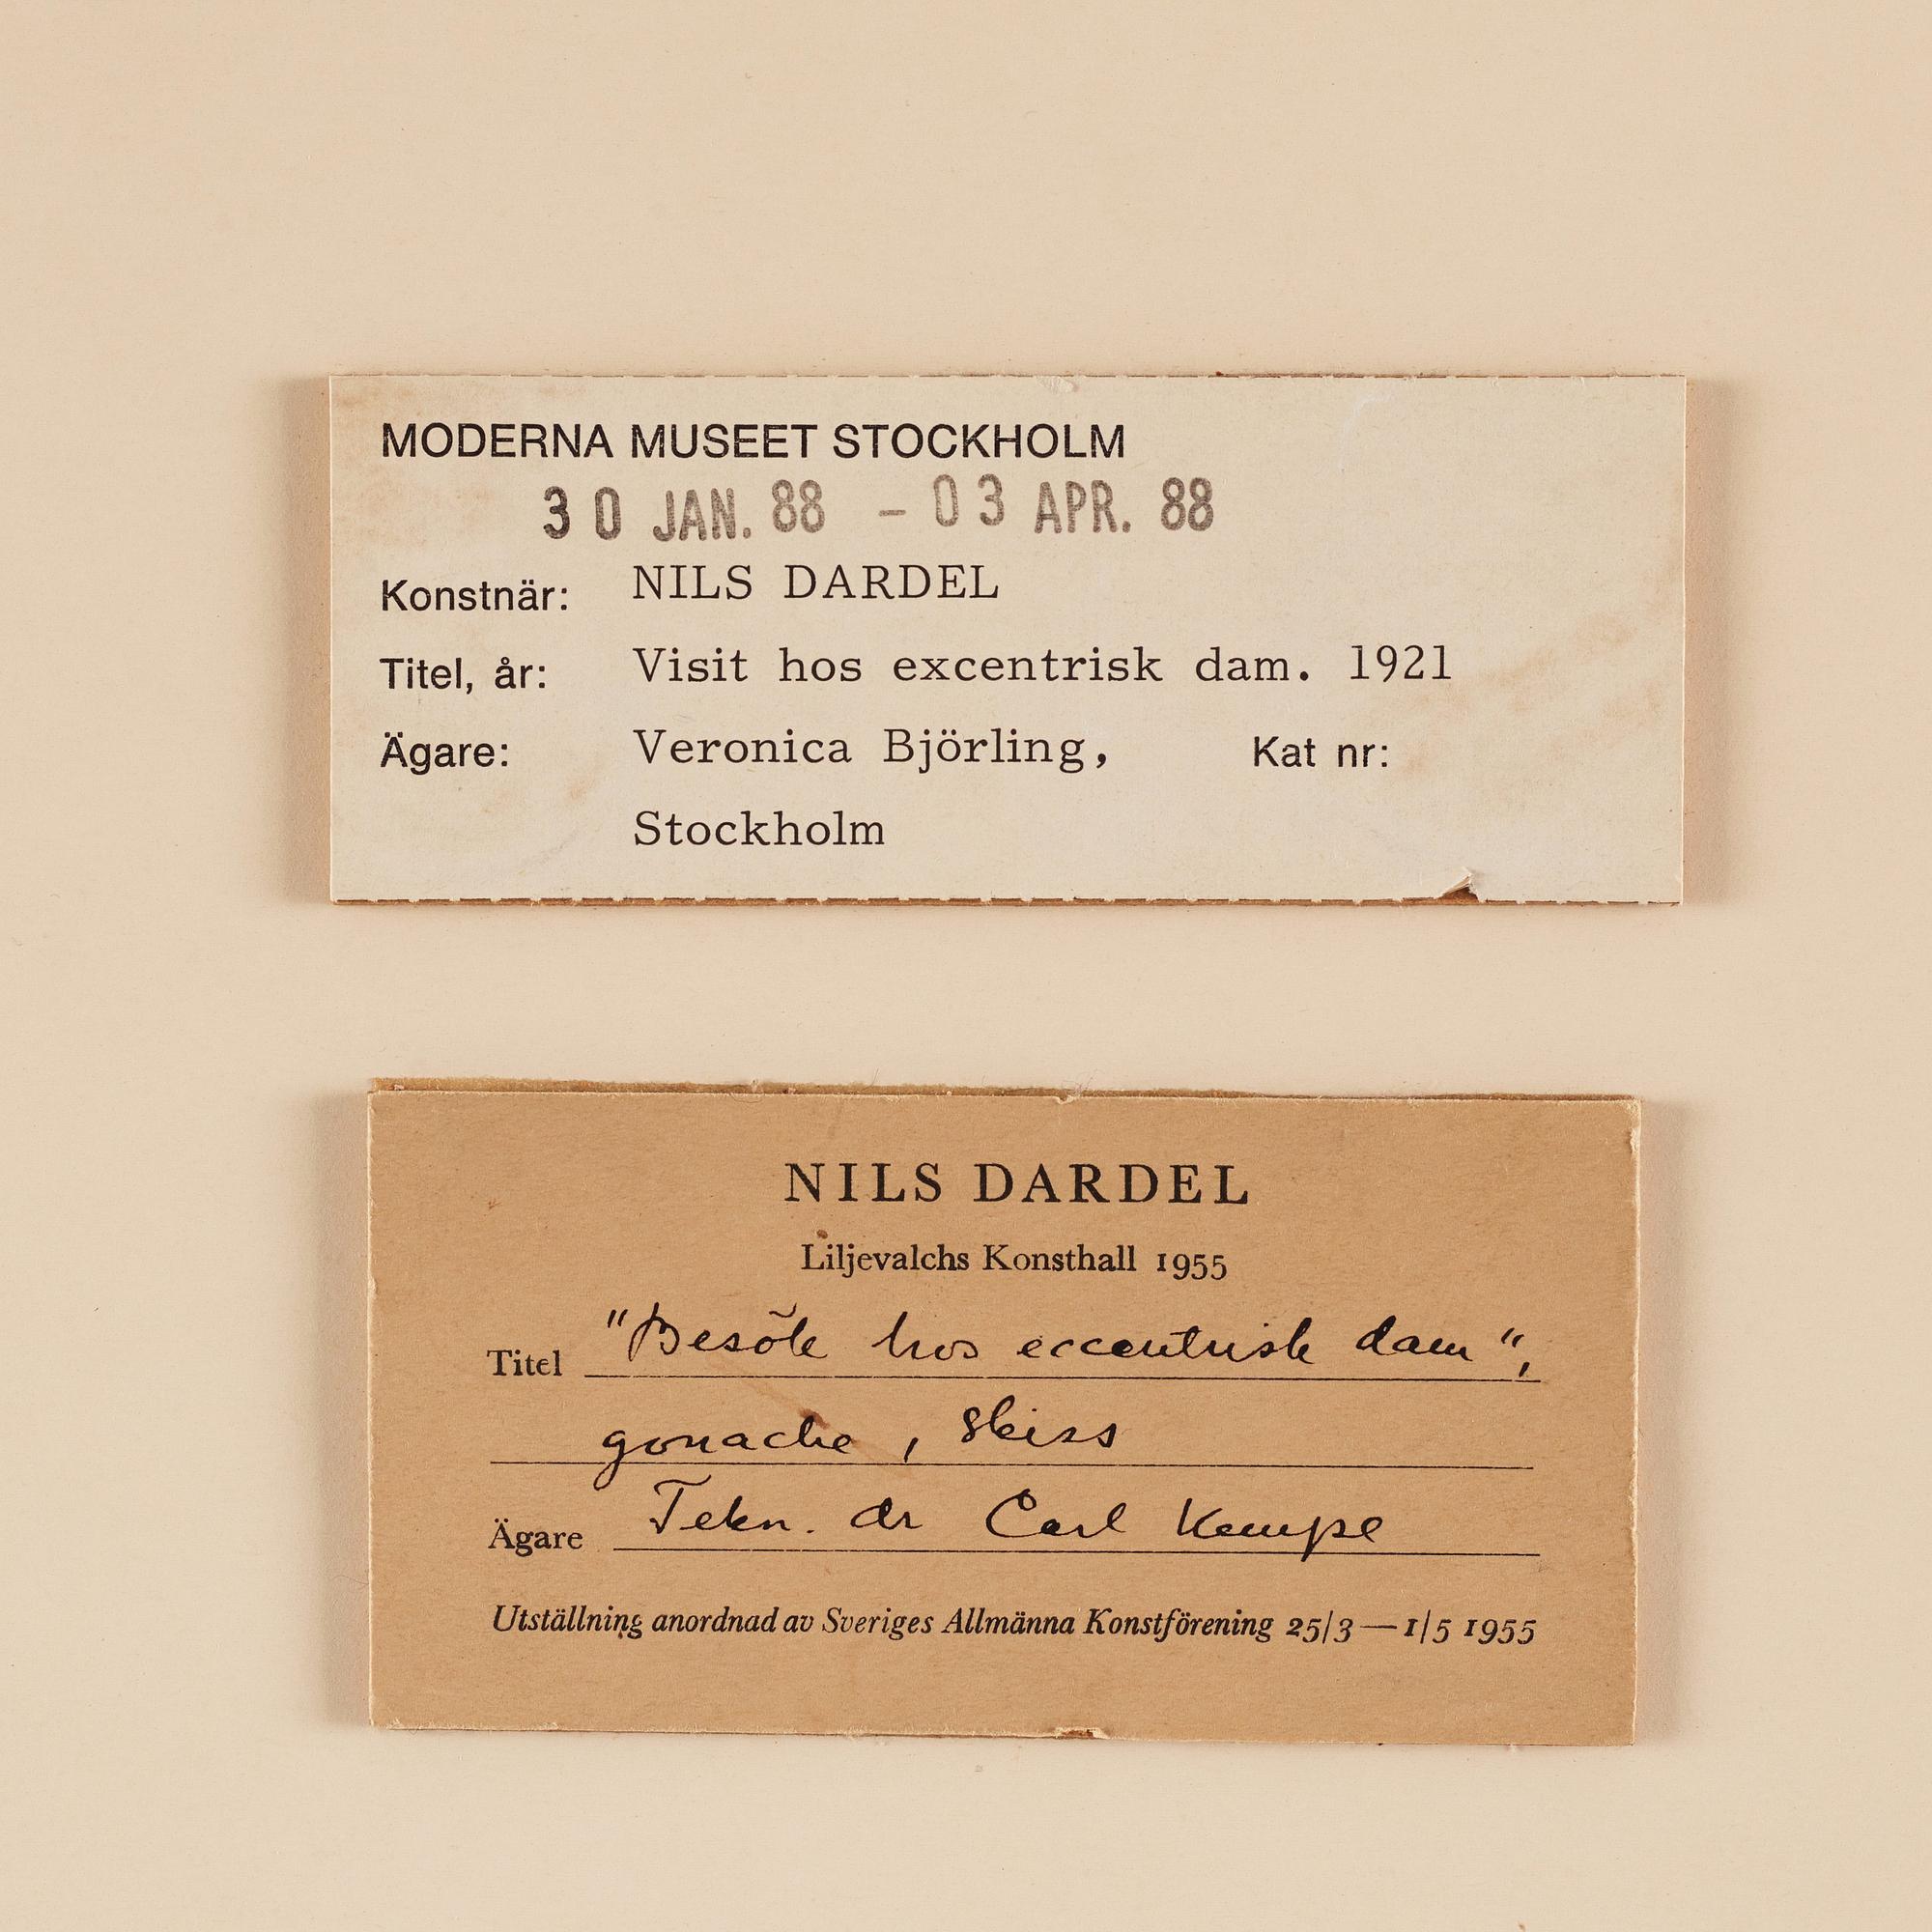 MODERNA MUSEET STOCKHOLM
30 JAN. 88 – 03 APR. 88
Konstnär: NILS DARDEL
Titel, år: Visit hos excentrisk dam. 1921
Ägare: Veronica Björling, Kat nr:
Stockholm
NILS DARDEL
Liljevalchs Konsthall 1955
Titel "Besök hos eccentrisk dam",
gouache, skiss
Ägare Tekn. dr Carl Kempe
Utställning anordnad av Sveriges Allmänna Konstförening 25/3—1/5 1955